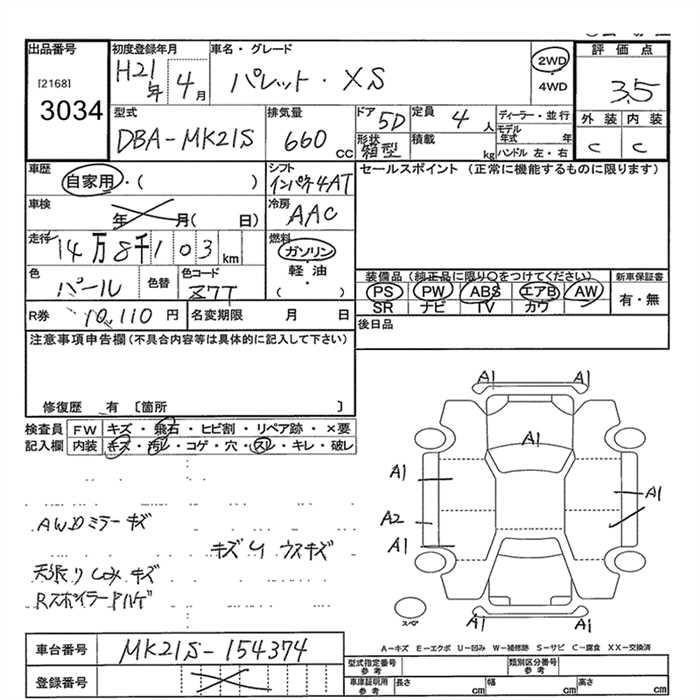 出品番号
[2168]
3034
初度登録年月
H21年 4月
車名・グレード
パレット・XS
2WD
4WD
評価点
3.5
外装 内装
C C
型式
DBA-MK21S
排気量
660 cc
ドア 5D
形状 箱型
定員 4人
積載 kg
ディーラー・並行
モデル年式 年
ハンドル 左・右
車歴
自家用・( )
シフト
インパネ4AT
セールスポイント (正常に機能するものに限ります)
車検
年 月( 日)
冷房
AAC
走行
14万8千103km
燃料
ガソリン
軽・油
( )
色
パール
色替
色コード
Z7T
装備品 (純正品に限り○をつけてください)
PS PW ABS エアB AW
SR ナビ TV カワ
新車保証書
有・無
R券 10,110円
名変期限 月 日
後日品
注意事項申告欄(不具合内容等は具体的に記入して下さい)
修復歴 有 〔箇所 〕
検査員 FW キズ・飛石・ヒビ割・リペア跡・×要
記入欄 内装 キズ・汚レ・コゲ・穴・スレ・キレ・破レ
A1 A1
A1
A1
A1
A2
A1
A1 A1
スペア
AWDミラーキズ
キズU ウスキズ
天張りしみキズ
RスポイラーPハゲ
A-キズ E-エクボ U-凹み W-補修跡 S-サビ C-腐食 XX-交換済
車台番号 MK21S-154374
登録番号
型式指定番号 参考
類別区分番号 参考
車庫証明用 参考
長さ cm
幅 cm
高さ cm